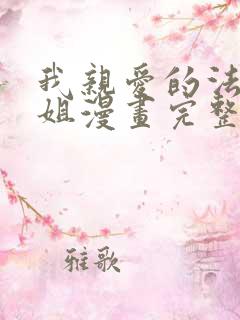 我親愛的法
姐漫畫完整
雅歌